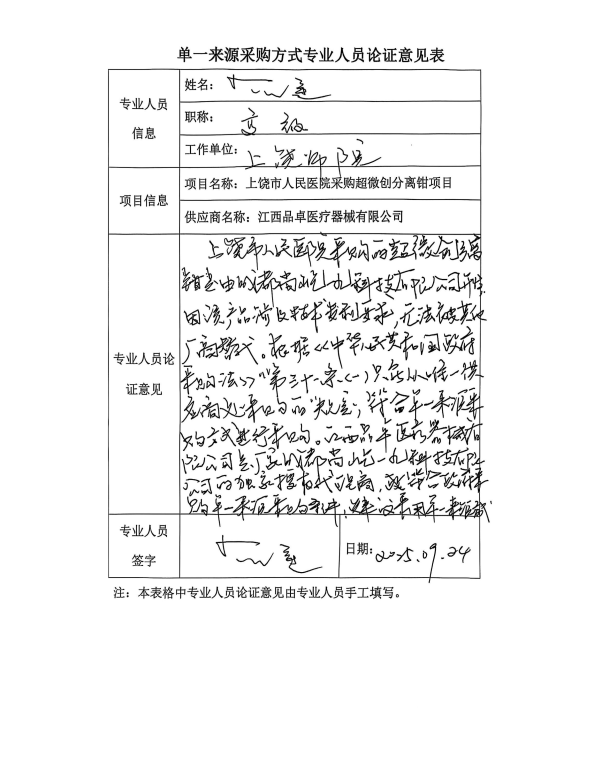 单一来源采购方式专业人员论证意见表
专业人员
信息
姓名：
职称：高级
工作单位：上饶师院
项目信息
项目名称：上饶市人民医院采购超微创分离钳项目
供应商名称：江西品卓医疗器械有限公司
专业人员论
证意见
上饶市人民医院采购的超微创分离
钳是由成都尚 科技有限公司
因该产品涉及技术专利要求，无法被其他
厂商替代。根据《中华人民共和国政府
采购法》第三十一条（一）只能从唯一供
应商处采购的 规定；符合单一来源采
购方式进行采购。江西品卓医疗器械有
限公司是厂家成都尚 科技有限
公司的独家授权代理商，故符合政府采
购单一来源采购条件，建议采用单一来源
专业人员
签字
日期：2025.09.24
注：本表格中专业人员论证意见由专业人员手工填写。